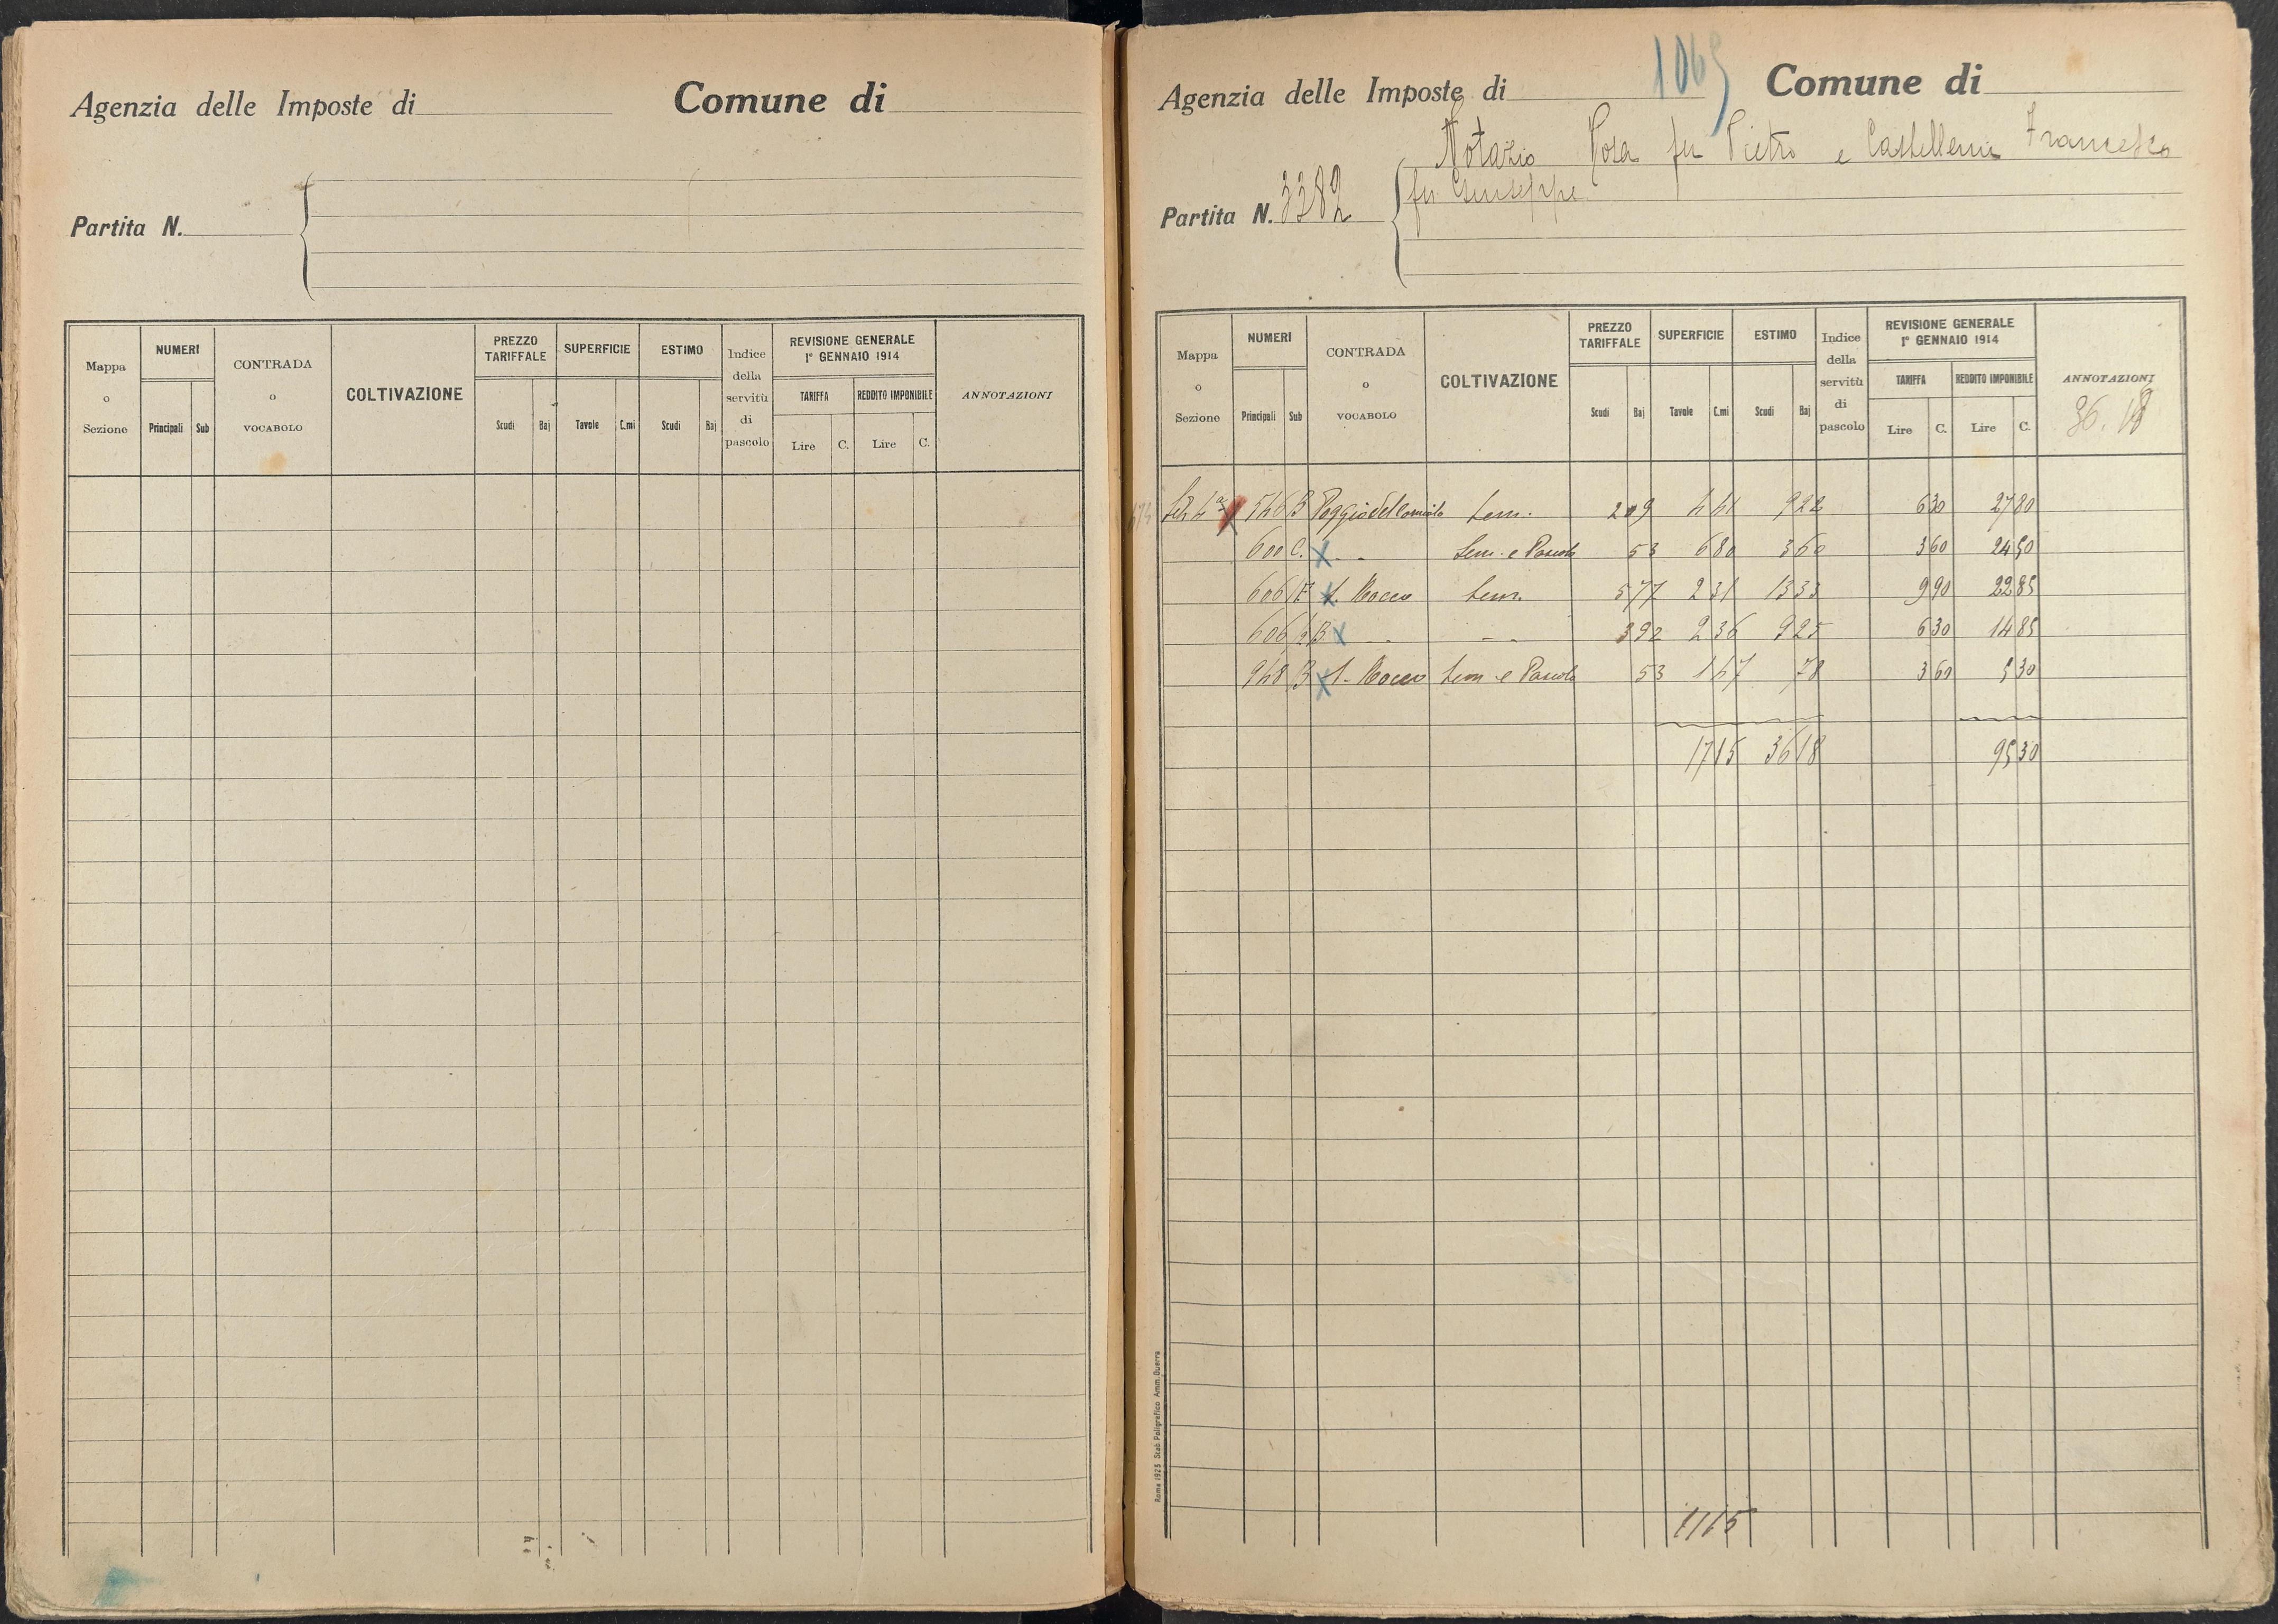 Agenzia delle Imposte di Comune di
Partita N.
Mappa o Sezione NUMERI Principali Sub CONTRADA o VOCABOLO COLTIVAZIONE PREZZO TARIFFALE Scudi Baj SUPERFICIE Tavole C.mi ESTIMO Scudi Baj Indice della servitù di pascolo REVISIONE GENERALE 1° GENNAIO 1914 TARIFFA Lire C. REDDITO IMPONIBILE Lire C. ANNOTAZIONI
1065
Agenzia delle Imposte di Comune di
Notazio Rosa fu Pietro e Castelleni Francesco
Partita N. 3382 fu Giuseppe
Mappa o Sezione NUMERI Principali Sub CONTRADA o VOCABOLO COLTIVAZIONE PREZZO TARIFFALE Scudi Baj SUPERFICIE Tavole C.mi ESTIMO Scudi Baj Indice della servitù di pascolo REVISIONE GENERALE 1° GENNAIO 1914 TARIFFA Lire C. REDDITO IMPONIBILE Lire C. ANNOTAZIONI
36.18
546 B Sem. 209 441 922 630 2780
600 C. - - Sem. e Pascolo 53 680 360 360 2450
606 S. Rocco Sem. 577 231 1333 990 2285
606 B - - - - 392 236 925 630 1485
948 B S. Rocco Sem e Pascolo 53 147 78 360 530
1715 3618 9530
1715
Roma 1925 Stab. Poligrafico Amm. Guerra